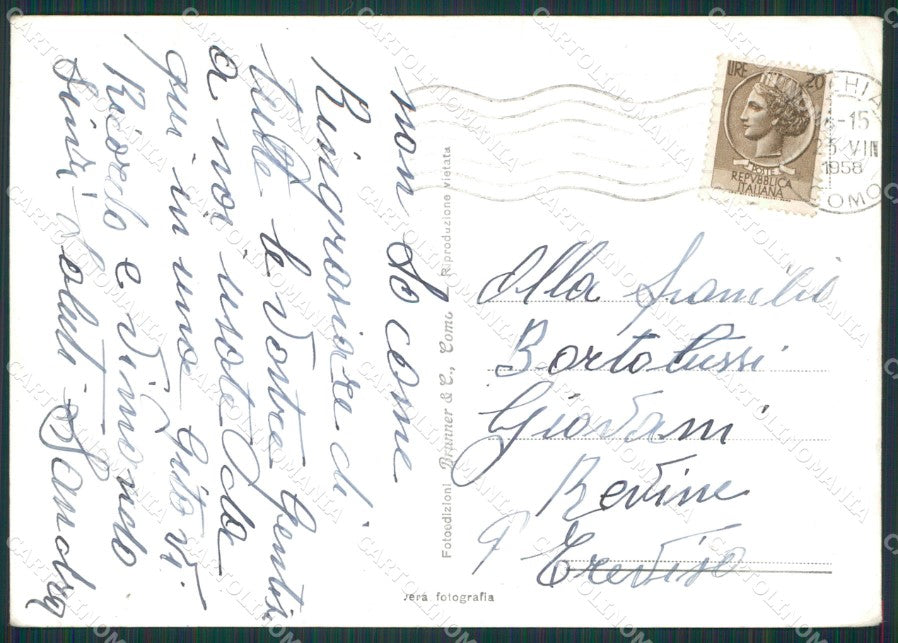 non So come
Ringrasiare di
tute le Vostre Gentos
a noi usate da
qui in uno Gita Vi
Ricordo e Vinvio nelo
Sinxi Saluti Sandra
Fotoedizioni Brunner & C., Como — Riproduzione vietata
vera fotografia
LIRE 20
POSTE
REPVBBLICA
ITALIANA
-15
25 VIII
1958
COMO
Alla Familia
Bortolussi
Giovani
Revine
P Treviso
CARTOLINOMANIA